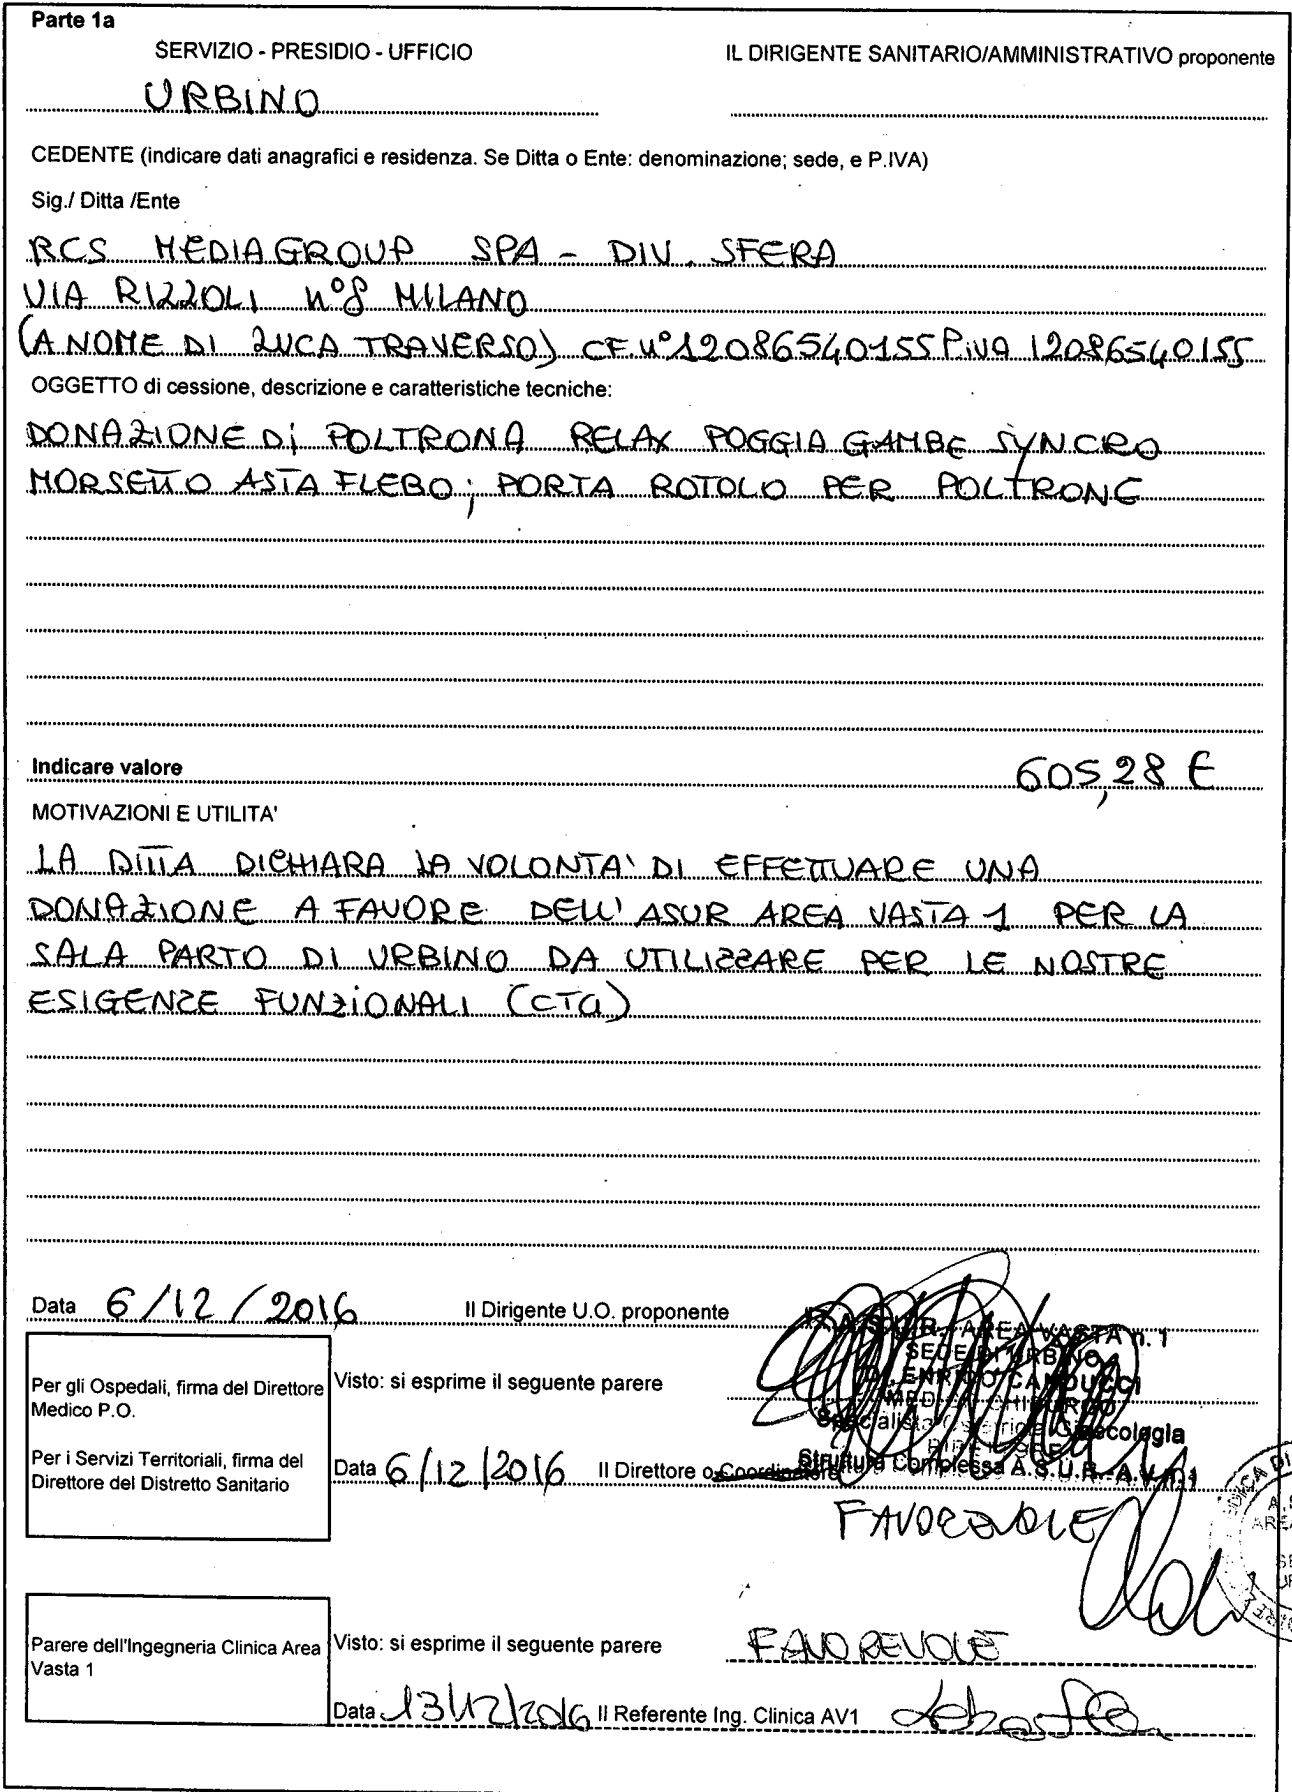 Parte 1a
SERVIZIO - PRESIDIO - UFFICIO
IL DIRIGENTE SANITARIO/AMMINISTRATIVO proponente
URBINO
CEDENTE (indicare dati anagrafici e residenza. Se Ditta o Ente: denominazione; sede, e P.IVA)
Sig./ Ditta /Ente
RCS MEDIAGROUP SPA - DIV. SFERA
VIA RIZZOLI n°8 MILANO
(A NOME DI LUCA TRAVERSO) CF. n°12086540155 P.iva 12086540155
OGGETTO di cessione, descrizione e caratteristiche tecniche:
DONAZIONE Di POLTRONA RELAX POGGIA GAMBE SYNCRO
MORSETTO ASTA FLEBO; PORTA ROTOLO PER POLTRONE
Indicare valore 605,28 €
MOTIVAZIONI E UTILITA'
LA DITTA DICHIARA LA VOLONTA' DI EFFETTUARE UNA
DONAZIONE A FAVORE DELL' ASUR AREA VASTA 1 PER LA
SALA PARTO DI URBINO DA UTILIZZARE PER LE NOSTRE
ESIGENZE FUNZIONALI (CTG)
Data 6/12/2016 Il Dirigente U.O. proponente
A.S.U.R. - AREA VASTA n. 1
SEDE DI URBINO
ENRICO CANDUCCI
MEDICO CHIRURGO
Per gli Ospedali, firma del Direttore
Medico P.O.
Visto: si esprime il seguente parere
Per i Servizi Territoriali, firma del
Direttore del Distretto Sanitario
Data 6/12/2016 Il Direttore o Coordinatore
Struttura Complessa A.S.U.R. - A.V. n.1
FAVOREVOLE
Parere dell'Ingegneria Clinica Area
Vasta 1
Visto: si esprime il seguente parere FAVOREVOLE
Data 13/12/2016 Il Referente Ing. Clinica AV1